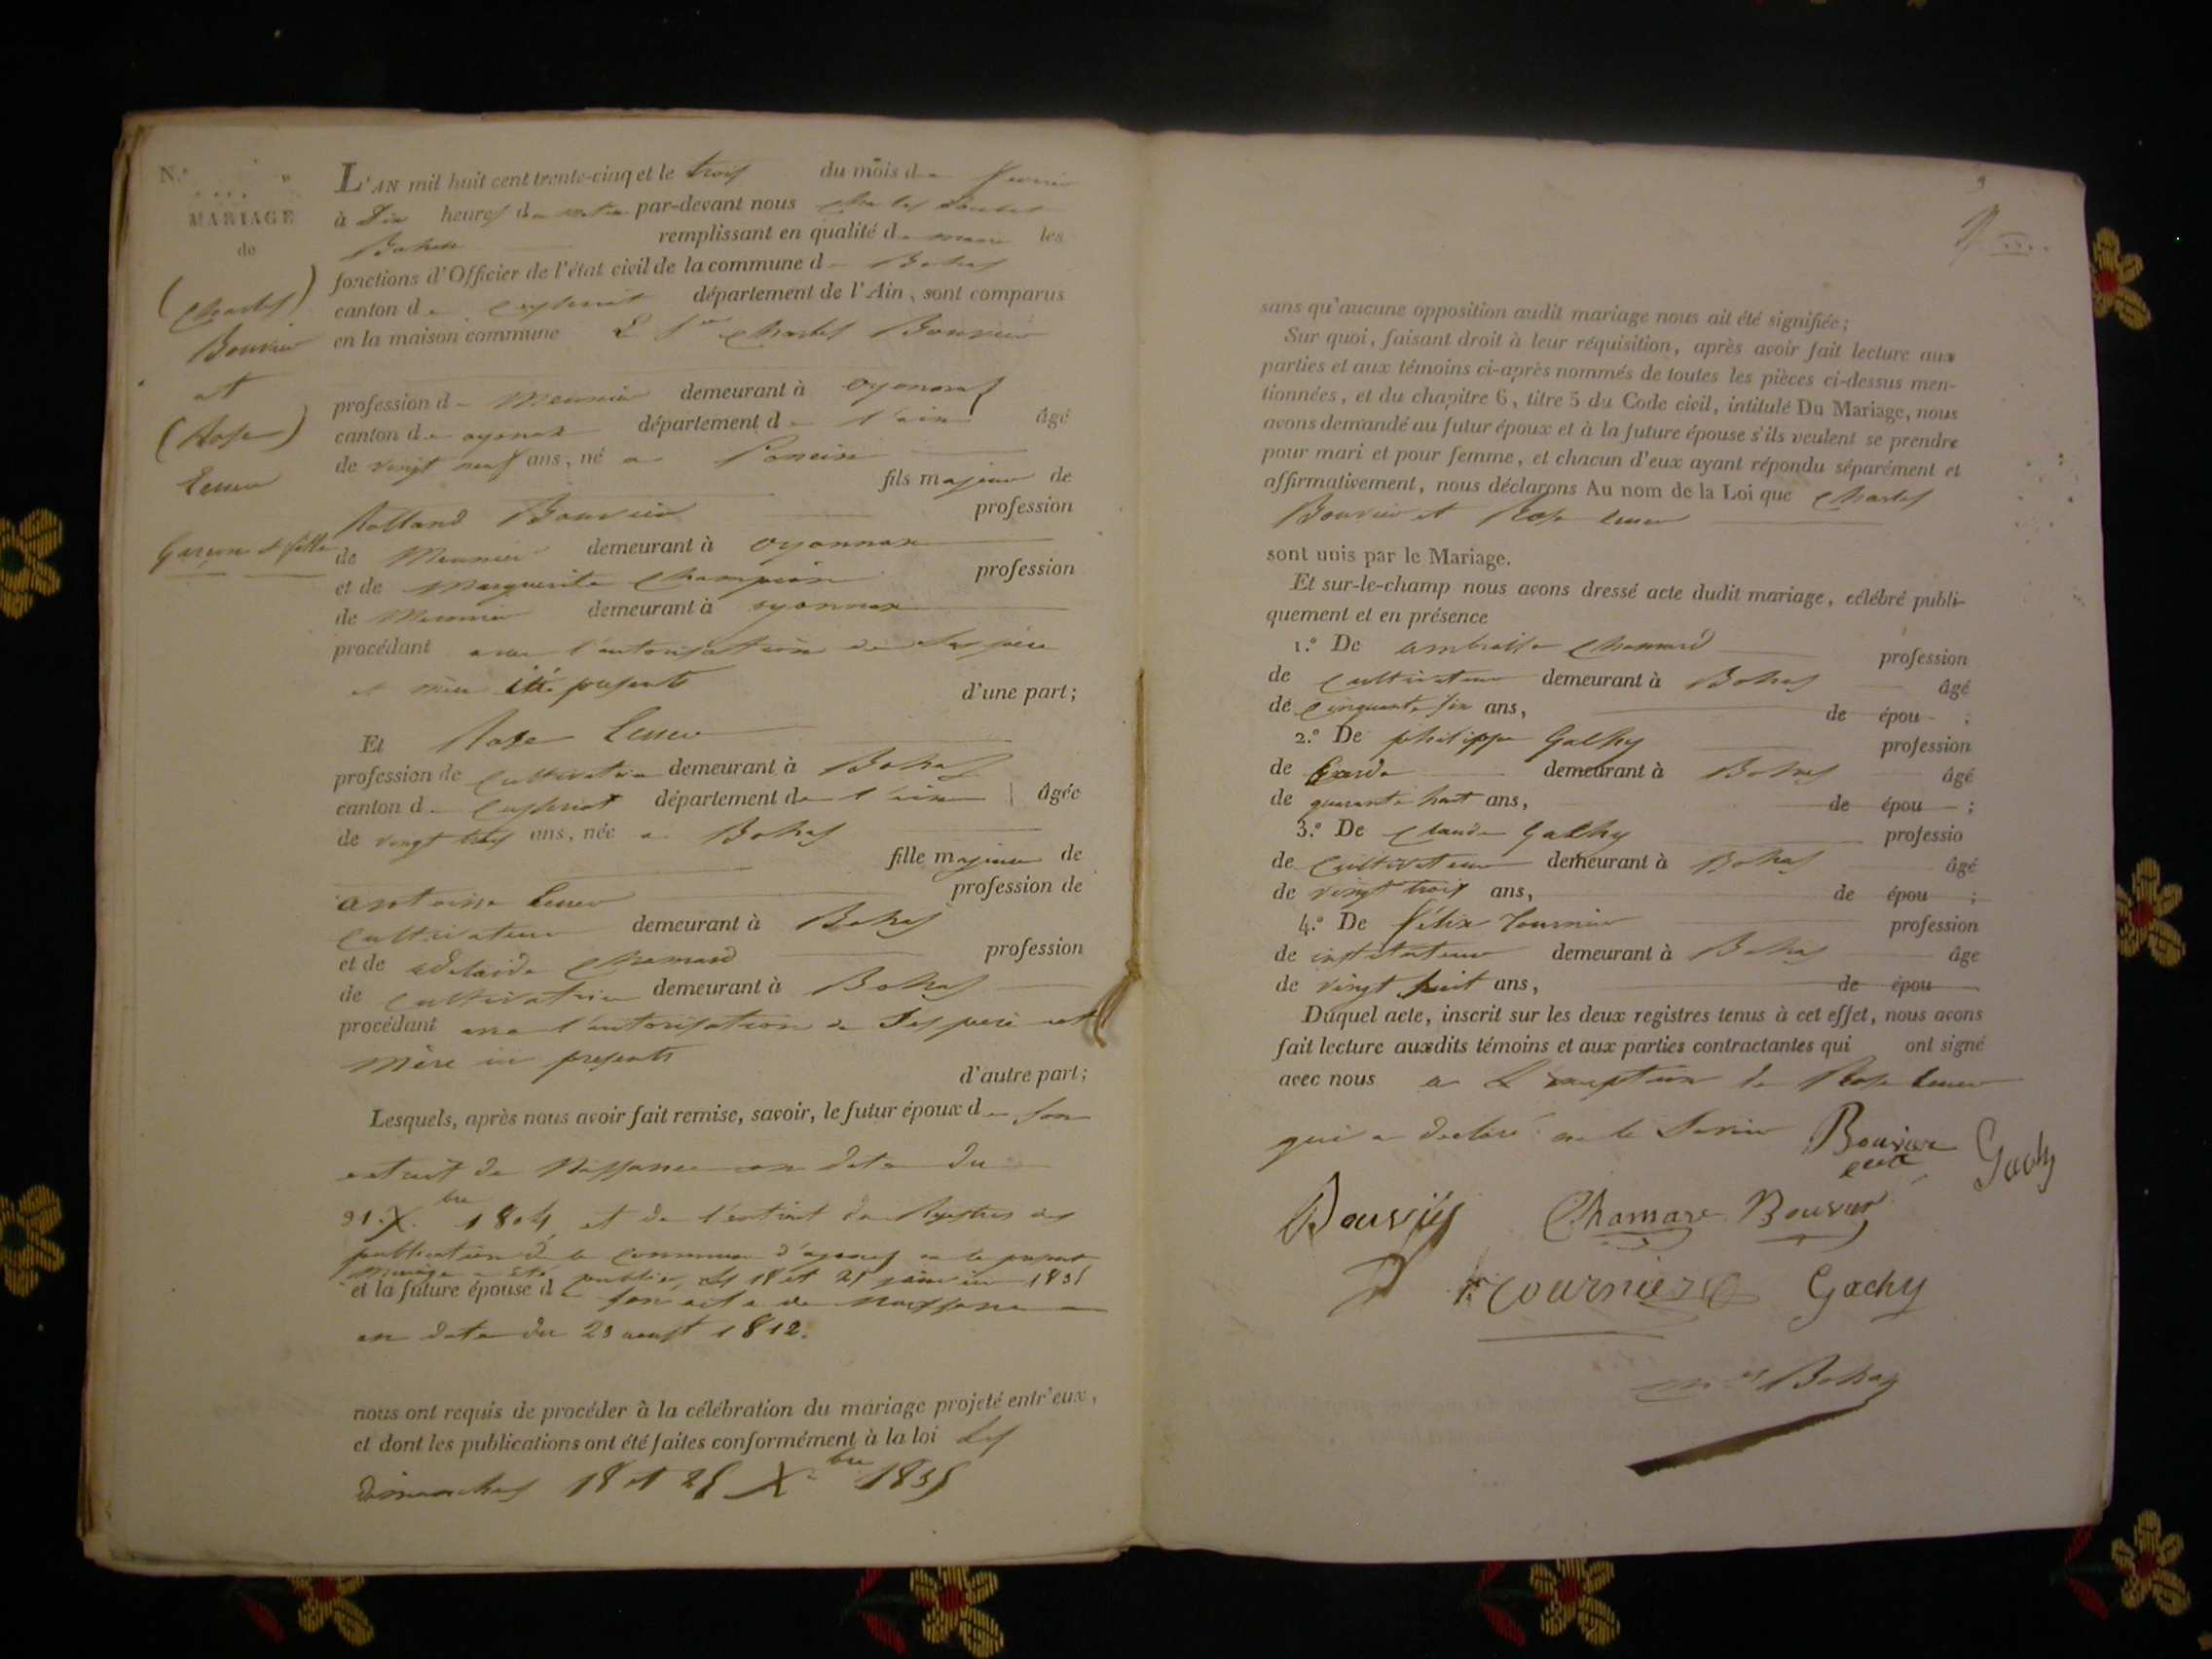 N.º
MARIAGE
de
(Charles)
Bouvier
et
(Rose)
Garçon et fille
L'AN mil huit cent trente-cinq et le trois du mois de fevrier
à Dix heures du matin par-devant nous Charles
Bohas remplissant en qualité de maire les
fonctions d'Officier de l'état civil de la commune de Bohas
canton de Ceyzeriat département de l'Ain, sont comparus
en la maison commune Le Sr Charles Bouvier
profession de Meunier demeurant à oyonnax
canton de oyonnax département de l'ain âgé
de vingt neuf ans, né a Poncin
fils majeur de
Rolland Bouvier profession
de Meunier demeurant à oyonnax
et de Marguerite Champion profession
de Meunier demeurant à oyonnax
procédant avec l'autorisation de Ses père
et mère ici présents d'une part;
Et Rose
profession de Cultivatrice demeurant à Bohas
canton de Ceyzeriat département de l'ain âgée
de vingt trois ans, née a Bohas
fille majeure de
antoine profession de
Cultivateur demeurant à Bohas
et de adelaide Chamard profession
de Cultivatrice demeurant à Bohas
procédant avec l'autorisation de Ses père et
mère ici présents
d'autre part;
Lesquels, après nous avoir fait remise, savoir, le futur époux de son
extrait de Naissance en date du
21. X.bre 1804 et de l'extrait des Registres des
publication de la commune d'oyonnax où le présent
mariage a été publier les 18 et 25 janvier 1835
et la future épouse de son acte de Naissance
en date du 23 aoust 1812.
nous ont requis de procéder à la célébration du mariage projeté entr'eux,
et dont les publications ont été faites conformément à la loi Les
dimanches 18 et 25 Xbre 1835
sans qu'aucune opposition audit mariage nous ait été signifiée;
Sur quoi, faisant droit à leur réquisition, après avoir fait lecture aux
parties et aux témoins ci-après nommés de toutes les pièces ci-dessus men-
tionnées, et du chapitre 6, titre 5 du Code civil, intitulé Du Mariage, nous
avons demandé au futur époux et à la future épouse s'ils veulent se prendre
pour mari et pour femme, et chacun d'eux ayant répondu séparément et
affirmativement, nous déclarons Au nom de la Loi que Charles
Bouvier et Rose
sont unis par le Mariage.
Et sur-le-champ nous avons dressé acte dudit mariage, célébré publi-
quement et en présence
1.º De ambroise Chamard profession
de Cultivateur demeurant à Bohas âgé
de Cinquante six ans, de épou ;
2.º De philippe Gachy profession
de Garde demeurant à Bohas âgé
de quarante huit ans, de épou ;
3.º De Claude Gachy professio
de Cultivateur demeurant à Bohas âgé
de vingt trois ans, de épou ;
4.º De félix Tournier profession
de instituteur demeurant à Bohas âge
de vingt huit ans, de épou
Duquel acte, inscrit sur les deux registres tenus à cet effet, nous avons
fait lecture auxdits témoins et aux parties contractantes qui ont signé
avec nous a L'exception de Rose
qui a declaré ne le Savoir Bouvier
Gachy
Bouvier Chamard Bouvier
Tournier Gachy
Bohas